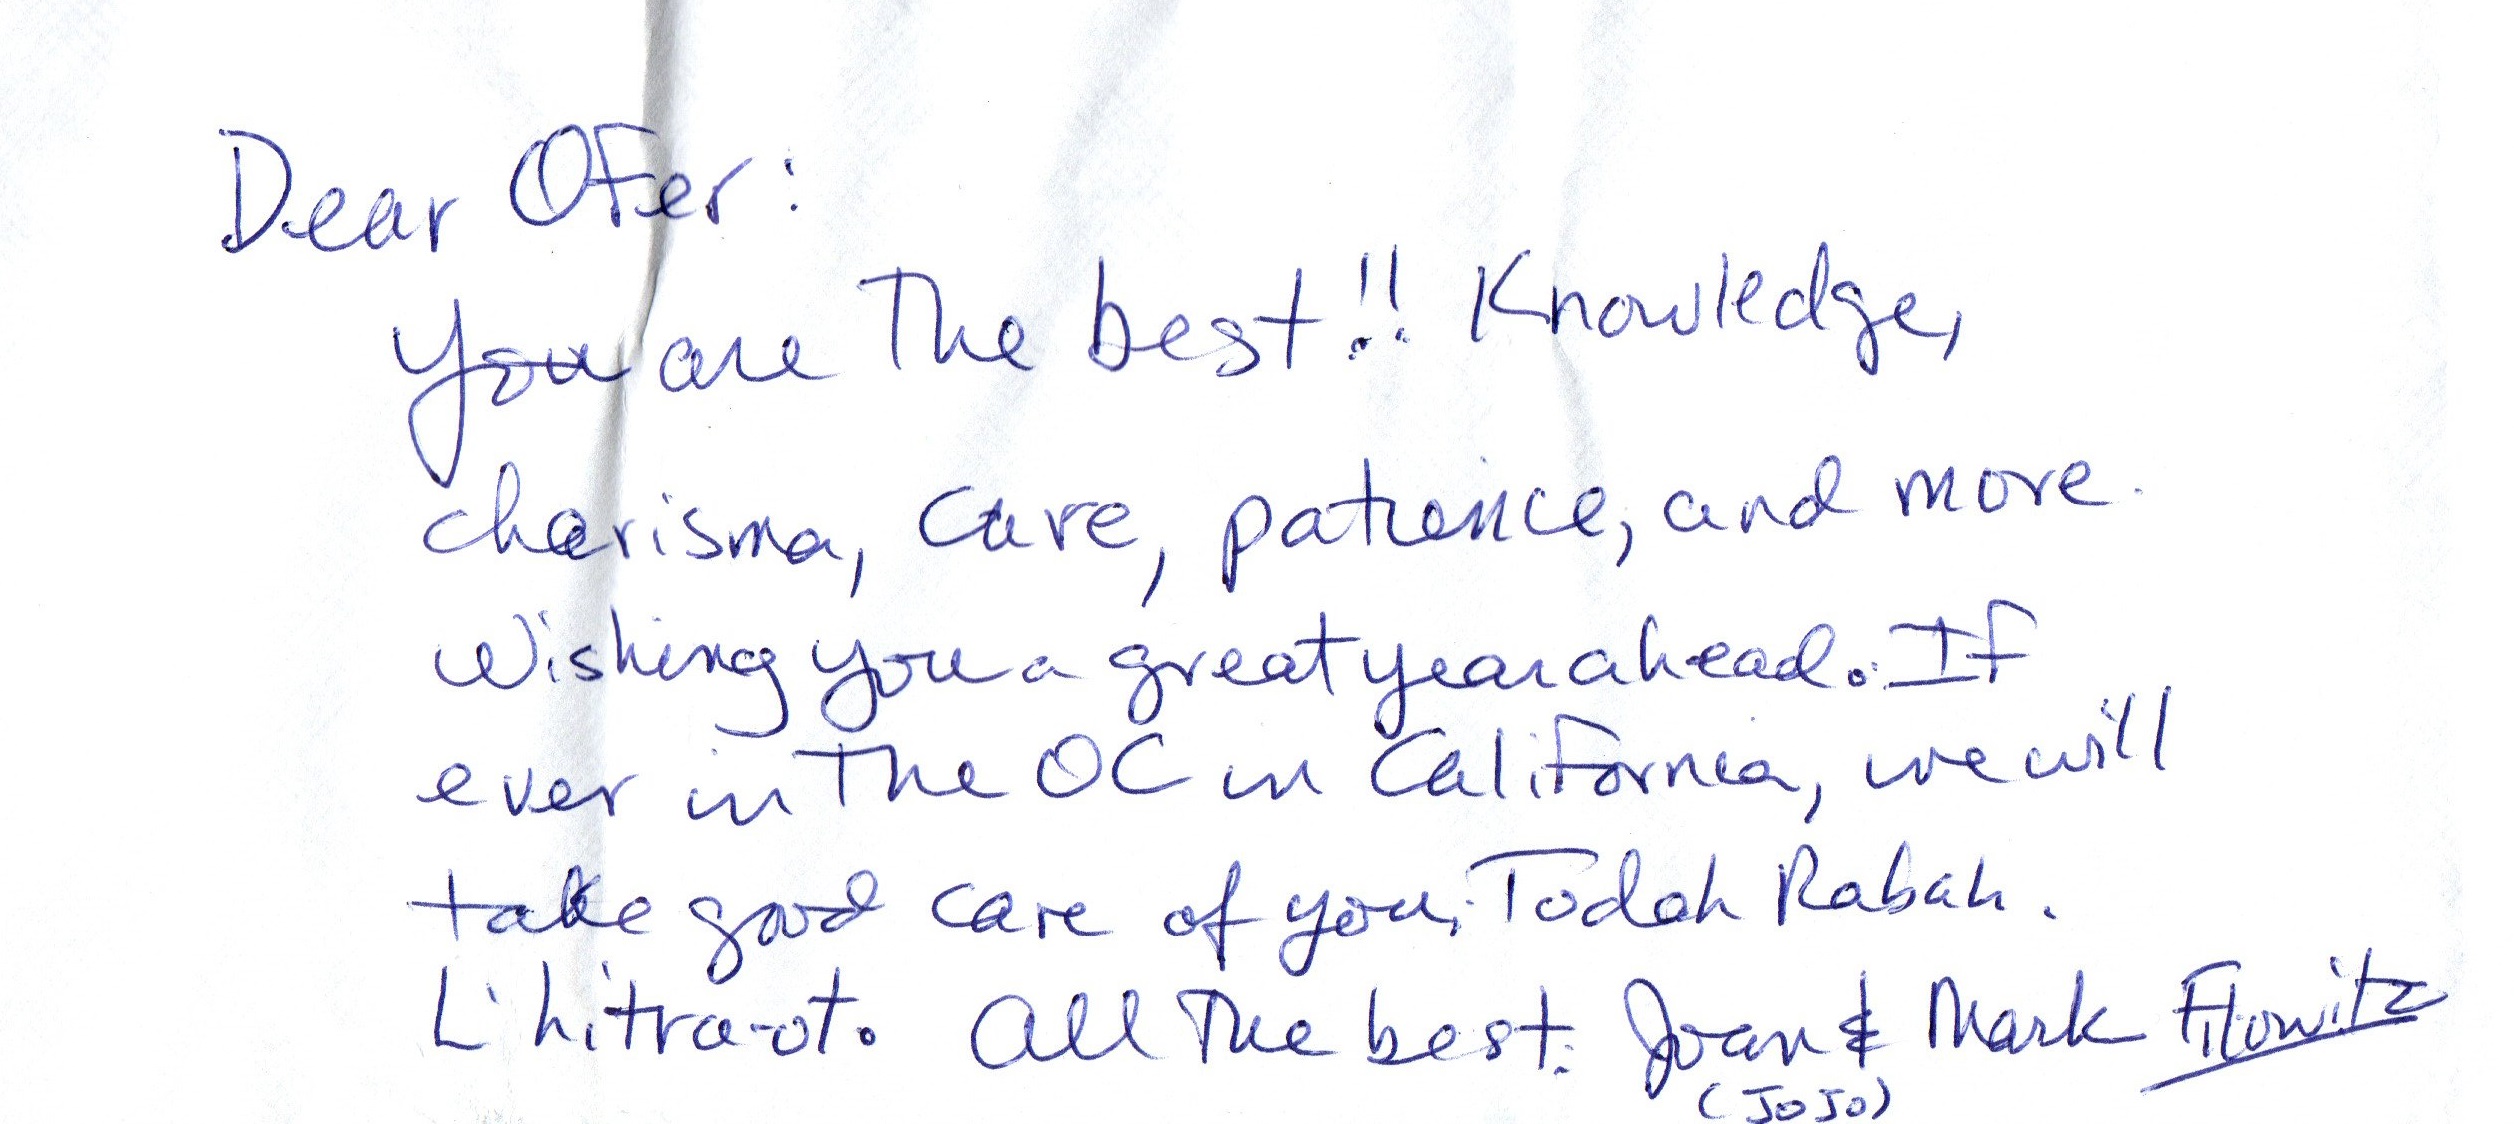 Dear OFer:
You are The best!! Knowledge,
charisma, care, patience, and more.
Wishing you a great year ahead. If
ever in The OC in California, we will
take good care of you. Todah Rabah.
L'hitra-ot. All The best. Joan & Mark
(JoJo)